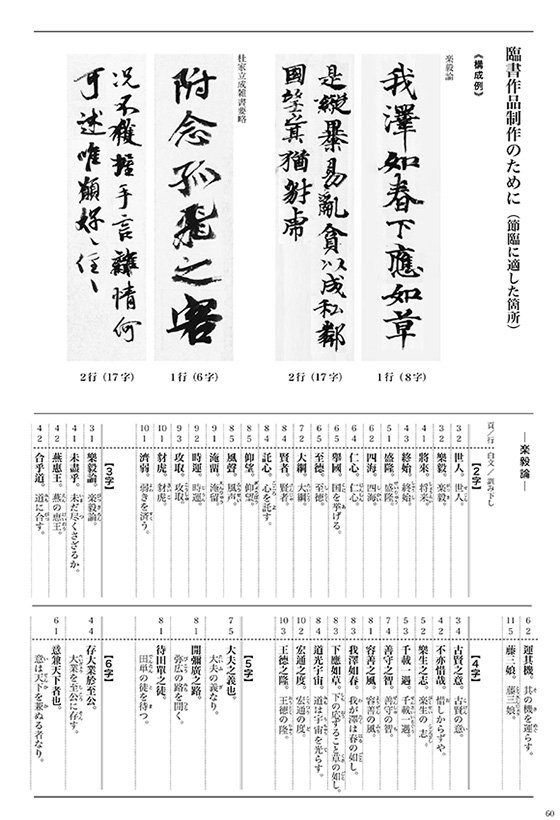 臨書作品制作のために（節臨に適した箇所）
《構成例》
楽毅論
我澤如春下應如草
1行（8字）
是縱暴易亂貪以成私鄰
國望之其猶豺虎
2行（17字）
杜家立成雑書要略
附念孤飛之客
1行（6字）
况不獲握手言離情何
可述唯願好〻住〻
2行（17字）
―楽毅論―
頁／行・白文／訓み下し
【2字】
3 2 世人。世人。
3 2 樂毅。楽毅。
4 1 將來。将来。
4 3 終始。終始。
5 1 盛隆。盛隆。
6 2 四海。四海。
6 4 仁心。仁心。
6 5 擧國。国を挙げる。
6 5 至德。至徳。
7 2 大綱。大綱。
8 4 賢者。賢者。
8 4 託心。心を託す。
8 5 仰望。仰望。
8 5 風聲。風声。
9 1 淹留。淹留。
9 2 時運。時運。
9 3 攻取。攻取。
10 1 豺虎。豺虎。
10 1 濟弱。弱きを済う。
【3字】
3 1 樂毅論。楽毅論。
4 1 未盡乎。未だ尽くさざるか。
4 2 燕惠王。燕の恵王。
4 2 合乎道。道に合す。
6 2 運其機。其の機を運らす。
11 5 藤三娘。藤三娘。
【4字】
3 4 古賢之意。古賢の意。
4 2 不亦惜哉。惜しからずや。
5 2 樂生之志。楽生の志。
5 3 千載一遇。千載一遇。
7 4 善守之智。善守の智。
8 1 容善之風。容善の風。
8 3 我澤如春。我が沢は春の如し。
8 3 下應如草。下の応ずること草の如し。
8 4 道光宇宙。道は宇宙を光らす。
10 2 宏通之度。宏通の度。
10 3 王德之隆。王徳の隆。
【5字】
7 5 大夫之義也。
大夫の義なり。
8 1 開彌廣之路。
弥広の路を開く。
8 1 待田單之徒。
田単の徒を待つ。
【6字】
4 4 存大業於至公。
大業を至公に存す。
6 1 意兼天下者也。
意は天下を兼ぬる者なり。
60